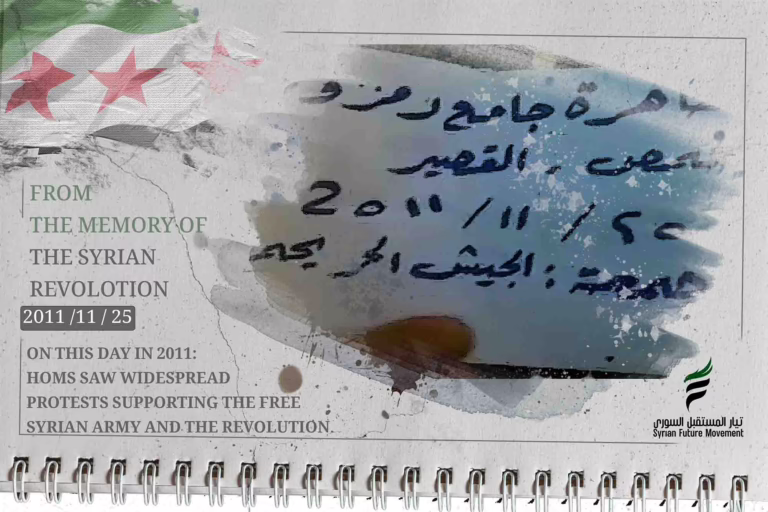 FROM
THE MEMORY OF
THE SYRIAN
REVOLOTION
2011 /11 / 25
ON THIS DAY IN 2011:
HOMS SAW WIDESPREAD
PROTESTS SUPPORTING THE FREE
SYRIAN ARMY AND THE REVOLUTION.
جامع
القصير
جمعة : الجيش الحر
تيار المستقبل السوري
Syrian Future Movement